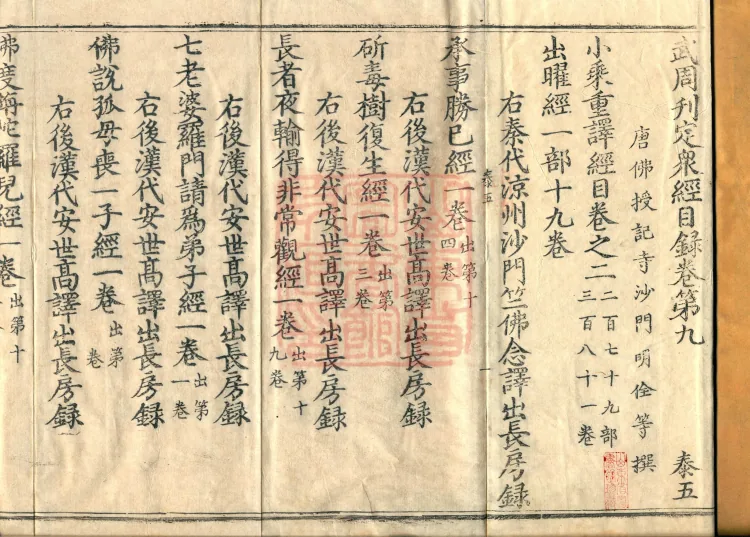 武周刊定衆經目録卷第九 泰五
唐佛授記寺沙門明佺等撰
小乘重譯經目卷之二 二百七十九部 三百八十一卷
出曜經一部十九卷
右秦代涼州沙門竺佛念譯出長房録
泰五 一
承事勝已經一卷 出第十四卷
右後漢代安世高譯出長房録
斫毒樹復生經一卷 出第三卷
右後漢代安世高譯出長房録
長者夜輸得非常觀經一卷 出第十九卷
右後漢代安世高譯出長房録
七老婆羅門請爲弟子經一卷 出第一卷
右後漢代安世高譯出長房録
佛說孤母喪一子經一卷 出第卷
右後漢代安世高譯出長房録
佛度旃陀羅兒經一卷 出第十